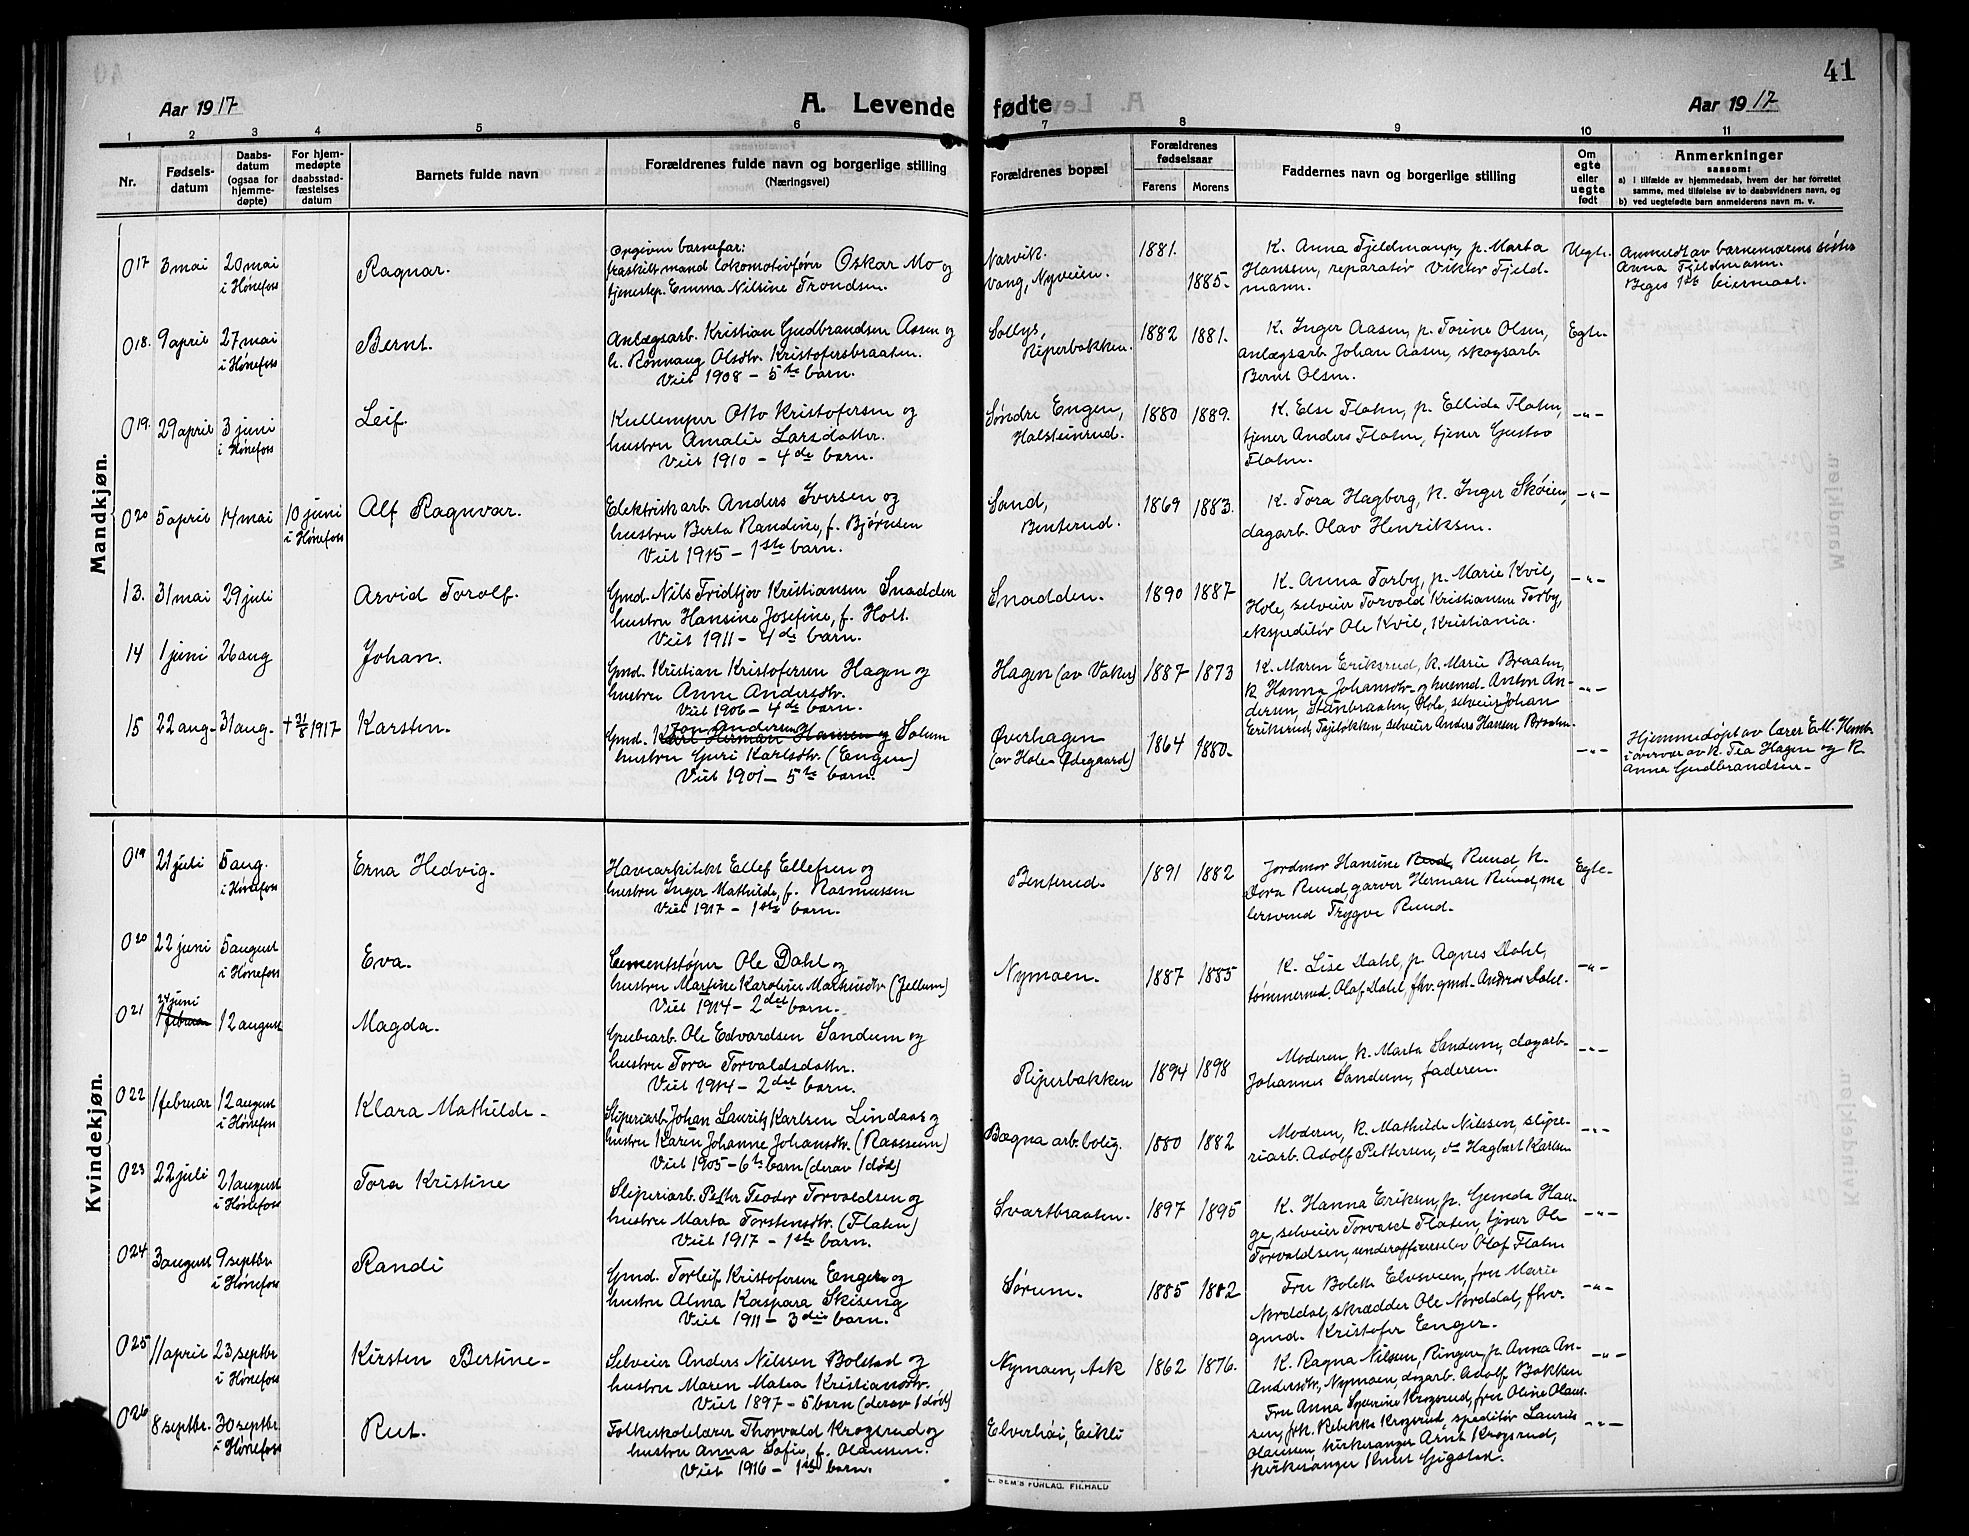 41
Aar 1917
A. Levende fødte
Aar 1917
1 2 3 4 5 6 7 8 9 10 11
Nr.
Fødsels-
datum
Daabs-
datum
(ogsaa for
hjemme-
døpte)
For hjem-
medøpte
daabsstad-
fæstelses
datum
Barnets fulde navn
Forældrenes fulde navn og borgerlige stilling
(Næringsvei)
Forældrenes bopæl
Forældrenes
fødselsaar
Farens Morens
Faddernes navn og borgerlige stilling
Om
egte
eller
uegte
født
Anmerkninger
saasom:
a) i tilfælde av hjemmedaab, hvem der har forrettet
samme, med tilføielse av to daabsvidners navn, og
b) ved uegtefødte barn anmelderens navn m. v.
Mandkjøn.
O17 3 mai 20 mai
i Hønefoss
Ragnar.
Opgiven barnefar:
fraskilt mand lokomotivfører Oskar Mo og
tjenestep. Emma Nilsine Trondsen.
Narvik.
Vang, Nyveien.
1881.
1885.
K. Anna Fjeldmann, p. Marta
Hanssen, reparatør Viktor Fjeld-
mann.
Uegte.
Anmeldt av barnemorens søster
Anna Fjeldmann.
Beges 1ste leiermaal.
O18. 9 april 27 mai
i Hønefoss
Bernt.
Anlægsarb. Kristian Gudbrandsen Aasen og
h. Rønnaug Olsdtr. Kristofersbraaten.
Viet 1908 - 5te barn.
Solbys,
Riperbakken.
1882 1881.
K. Inger Aasen, p. Torine Olsen,
anlægsarb. Johan Aasen, skogsarb.
Bernt Olsen.
Egte.
O19. 29 april 3 juni
i Hønefoss
Leif.
Kullemper Otto Kristofersen og
hustru Amalie Larsdatter.
Viet 1910 - 4de barn.
Søndre Engen,
Halsteinrud.
1880 1889.
K. Else Flaten, p. Ellida Flaten,
tjener Anders Flaten, tjener Gustav
Flaten.
-"-
O20 5 april 14 mai 10 juni
i Hønefoss
Alf Ragnvar.
Elektriskarb. Anders Iversen og
hustru Berta Randine, f. Bjørnsen
Viet 1915 - 1ste barn.
Sand,
Benterud.
1869 1883.
K. Tora Hagberg, k. Inger Skøien,
dagarb. Olav Henriksen.
-"-
13. 31 mai 29 juli
Arvid Torolf.
Gmd. Nils Fridtjov Kristiansen Snadden
hustru Hansine Josefine, f. Holt.
Viet 1911 - 4de barn.
Snadden.
1890 1887
K. Anna Torby, p. Marie Kvil,
Hole, selveier Torvald Kristiansen Torby,
ekspeditør Ole Kvil, Kristiania.
-"-
14 1 juni 26 aug
Johan.
Gmd. Kristian Kristofersen Hagen og
hustru Anne Andersdtr.
Viet 1906 - 4de barn.
Hagen (av Vaker)
1887 1873
K. Maren Eriksrud, k. Marie Braaten,
k. Hanna Johansdtr. og husmd. Anton An-
dersen, Stenbraaten, Hole, selveier Johan
Eriksrud, selveier Anders Hansen Braaten.
-"-
15 22 aug. 31 aug. † 31/8 1917
Karsten.
Jon Andersen
Gmd. Karl Herman Hansen og Solum
hustru Guri Karlsdtr. (Engen)
Viet 1901 - 5te barn.
Øverhagen
(av Hole-Ødegaard)
1864 1880.
-"-
Hjemmedøpt av lærer E. M.
i overvær av k. Tea Hagen og k.
Anna Gudbrandsen.
Kvindekjøn.
O19 21 juli 5 aug.
i Hønefoss
Erna Hedvig.
Havearkitekt Ellef Ellefsen og
hustru Inger Mathilde, f. Rasmussen
Viet 1917 - 1ste barn.
Benterud.
1891 1882
Jordmor Hansine Rud Ruud, k.
Dora Ruud, garver Herman Ruud, ma
lersvend Trygve Ruud.
Egte.
O20 22 juni 5 august
i Hønefoss
Eva.
Cementstøper Ole Dahl og
hustru Martine Karoline Mathisdtr (Jellum)
Viet 1914 - 2det barn.
Nymoen.
1887 1885
K. Lise Dahl, p. Agnes Dahl,
tømmermd. Olaf Dahl, fhv. gmd. Andreas Dahl.
-"-
O21 24 juni
1 februar 12 august
Magda.
Grubearb. Ole Edvardsen Sandum og
hustru Tora Torvaldsdatter.
Viet 1914 - 2det barn.
Riperbakken
1894 1898
Moderen, k. Marta Sandum, dagarb.
Johannes Sandum, faderen.
-"-
O22 1 februar 12 august
i Hønefoss
Klara Mathilde.
Sliperiarb. Johan Lauritz Karlsen Lindaas og
hustru Karen Johanne Johansdtr. (Rasseum)
Viet 1905 - 6te barn (derav 1 død)
Bægna arb.bolig.
1880 1882
Moderen, k. Mathilde Nilssen, slipe-
riarb. Adolf Pettersen, do Hagbart Karlsen
-"-
O23 22 juli 21 august
i Hønefoss
Tora Kristine
Sliperiarb. Petter Teodor Torvaldsen og
hustru Marta Torstensdtr. (Flaten)
Viet 1917 - 1ste barn.
Svartbraaten.
1897 1895
K. Hanna Eriksen, p. Gunda Hau-
ge, selveier Torvald Flaten, tjener Ole
Torvaldsen, underofficerselev Olaf Flaten
-"-
O24 3 august 9 septbr
i Hønefoss
Randi
Gmd. Torleif Kristofersen Enger og
hustru Alma Kaspara Skiseng
Viet 1911 - 3die barn.
Sørum.
1885 1882
Fru Bolette Elvsveen, fru Marie
Norddal, skrædder Ole Norddal, fhv.
gmd. Kristofer Enger.
-"-
O25 11 april 23 septbr
i Hønefoss
Kirsten Bertine.
Selveier Anders Nilssen Bolstad og
hustru Maren Matea Kristiansdtr.
Viet 1897 - 5 barn (derav 1 død)
Nymoen, Ask
1862 1876.
K. Ragna Nilsen, Ringen, p. Anna An-
Andersdtr, Nymoen, dagarb. Adolf Bakken
-"-
O26 8 septbr. 30 septbr
i Hønefoss
Rut.
Folkeskolelærer Thorvald Krogsrud og
hustru Anna Sofie, f. Olaussen.
Viet 1916 - 1ste barn.
Elverhøi, Eikli
Fru Anna Severine Krogsrud, fru Oline Olaus-
sen, frk. Rebekka Krogsrud, speditør Lauritz
Olaussen, kirkesanger Arnt Krogsrud,
kirkesanger Knut Gjigstad.
-"-
SEM'S FORLAG, FR.HALD